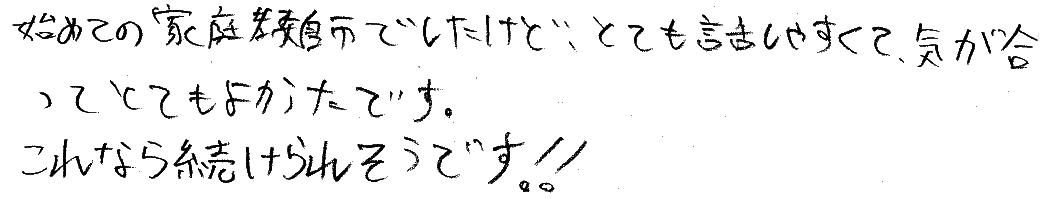 始めての家庭教師でしたけど、とても話しやすくて、気が合
ってとてもよかったです。
これなら続けられそうです!!